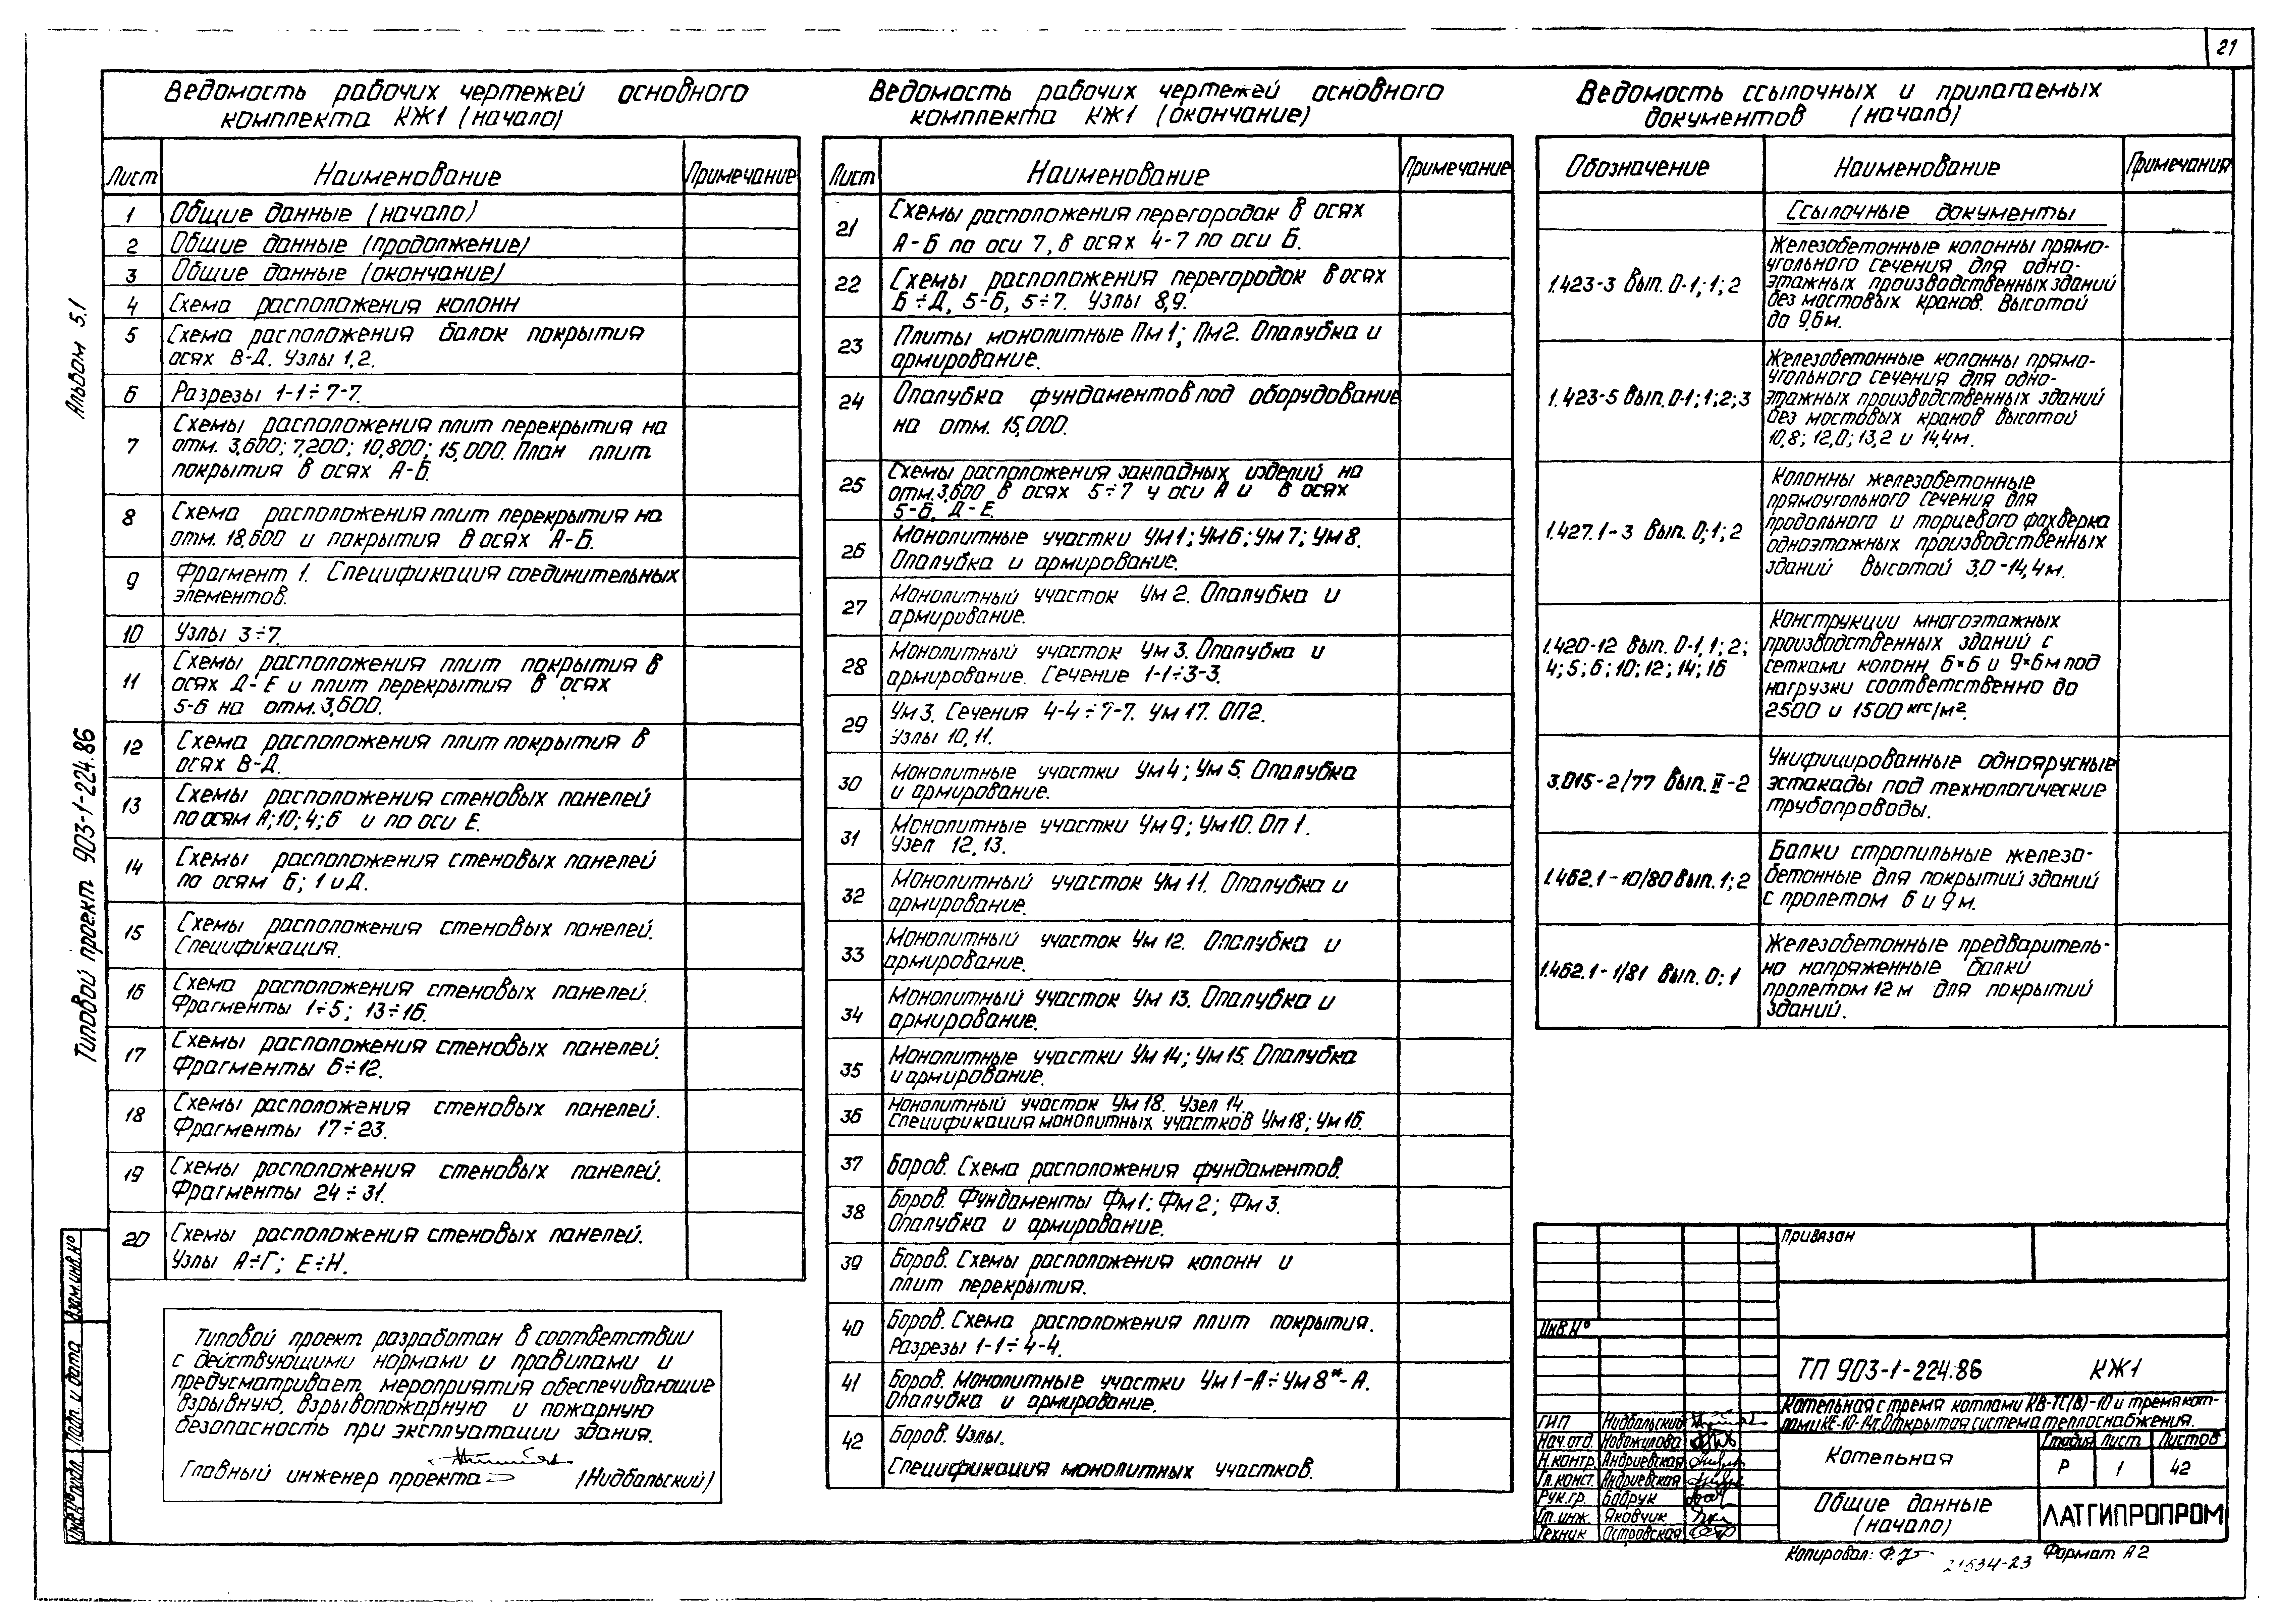 21
Альбом 5.1
Типовой проект 903-1-224.86
Ведомость рабочих чертежей основного
комплекта КЖ1 (начало)
Лист Наименование Примечание
1 Общие данные (начало)
2 Общие данные (продолжение)
3 Общие данные (окончание)
4 Схема расположения колонн
5 Схема расположения балок покрытия
осях В-Д. Узлы 1,2.
6 Разрезы 1-1÷7-7.
7 Схемы расположения плит перекрытия на
отм. 3,600; 7,200; 10,800; 15,000. План плит
покрытия в осях А-Б.
8 Схема расположения плит перекрытия на
отм. 18,600 и покрытия в осях А-Б.
9 Фрагмент 1. Спецификация соединительных
элементов.
10 Узлы 3÷7.
11 Схемы расположения плит покрытия в
осях Д-Е и плит перекрытия в осях
5-6 на отм. 3,600.
12 Схема расположения плит покрытия в
осях В-Д.
13 Схемы расположения стеновых панелей
по осям А; 10; 4; 6 и по оси Е.
14 Схемы расположения стеновых панелей
по осям Б; 1 и Д.
15 Схемы расположения стеновых панелей.
Спецификация.
16 Схема расположения стеновых панелей.
Фрагменты 1÷5; 13÷16.
17 Схемы расположения стеновых панелей.
Фрагменты 6÷12.
18 Схемы расположения стеновых панелей.
Фрагменты 17÷23.
19 Схемы расположения стеновых панелей.
Фрагменты 24÷31.
20 Схемы расположения стеновых панелей.
Узлы А÷Г; Е÷Н.
Типовой проект разработан в соответствии
с действующими нормами и правилами и
предусматривает мероприятия обеспечивающие
взрывную, взрывопожарную и пожарную
безопасность при эксплуатации здания.
Главный инженер проекта (Нидбальский)
Ведомость рабочих чертежей основного
комплекта КЖ1 (окончание)
Лист Наименование Примечание
21 Схемы расположения перегородок в осях
А-Б по оси 7, в осях 4-7 по оси Б.
22 Схемы расположения перегородок в осях
Б÷Д, 5-6, 5÷7. Узлы 8,9.
23 Плиты монолитные Пм1; Пм2. Опалубка и
армирование.
24 Опалубка фундаментов под оборудование
на отм. 15,000.
25 Схемы расположения закладных изделий на
отм. 3,600 в осях 5÷7 у оси А и в осях
5-6, Д-Е.
26 Монолитные участки Ум1; Ум6; Ум7; Ум8.
Опалубка и армирование.
27 Монолитный участок Ум 2. Опалубка и
армирование.
28 Монолитный участок Ум 3. Опалубка и
армирование. Сечение 1-1÷3-3.
29 Ум 3. Сечения 4-4÷7-7. Ум 17. ОП2.
Узлы 10,11.
30 Монолитные участки Ум 4; Ум 5. Опалубка
и армирование.
31 Монолитные участки Ум 9; Ум10. Оп 1.
Узел 12,13.
32 Монолитный участок Ум 11. Опалубка и
армирование.
33 Монолитный участок Ум 12. Опалубка и
армирование.
34 Монолитный участок Ум 13. Опалубка и
армирование.
35 Монолитные участки Ум 14; Ум 15. Опалубка
и армирование.
36 Монолитный участок Ум 18. Узел 14.
Спецификация монолитных участков Ум18; Ум 16.
37 Боров. Схема расположения фундаментов.
38 Боров. Фундаменты Фм1; Фм 2; Фм 3.
Опалубка и армирование.
39 Боров. Схемы расположения колонн и
плит перекрытия.
40 Боров. Схема расположения плит покрытия.
Разрезы 1-1÷4-4.
41 Боров. Монолитные участки Ум 1-А÷Ум 8*-А.
Опалубка и армирование.
42 Боров. Узлы.
Спецификация монолитных участков.
Ведомость ссылочных и прилагаемых
документов (начало)
Обозначение Наименование Примечания
Ссылочные документы
1.423-3 Вып. 0-1; 1; 2 Железобетонные колонны прямо-
угольного сечения для одно-
этажных производственных зданий
без мостовых кранов. Высотой
до 9,6м.
1.423-5 Вып. 0-1; 1; 2; 3 Железобетонные колонны прямо-
угольного сечения для одно-
этажных производственных зданий
без мостовых кранов высотой
10,8; 12,0; 13,2 и 14,4м.
1.427.1-3 Вып. 0; 1; 2 Колонны железобетонные
прямоугольного сечения для
продольного и торцевого фахверка
одноэтажных производственных
зданий высотой 3,0-14,4м.
1.420-12 Вып. 0-1, 1; 2;
4; 5; 6; 10; 12; 14; 16 Конструкции многоэтажных
производственных зданий с
сетками колонн 6×6 и 9×6м под
нагрузки соответственно до
2500 и 1500 кгс/м².
3.015-2/77 Вып. II-2 Унифицированные одноярусные
эстакады под технологические
трубопроводы.
1.462.1-10/80 Вып. 1; 2 Балки стропильные железо-
бетонные для покрытий зданий
с пролетом 6 и 9 м.
1.462.1-1/81 Вып. 0; 1 Железобетонные предваритель-
но напряженные балки
пролетом 12 м для покрытий
зданий.
Привязан
Инв.№
ТП 903-1-224.86 КЖ1
Котельная с тремя котлами КВ-ТС(В)-10 и тремя кот-
лами КЕ-10-14г. Открытая система теплоснабжения.
ГИП Нидбальский
Нач.отд. Новожилова
Н.контр. Андриевская
Гл.конст. Андриевская
Рук.гр. Бабрук
Ст.инж. Яковчик
Техник Островская
Котельная
Стадия Лист Листов
Р 1 42
Общие данные
(начало)
ЛАТГИПРОПРОМ
Копировал: Формат А2
21534-23
Взам.инв.№
Подп. и дата
Инв.№ подл.